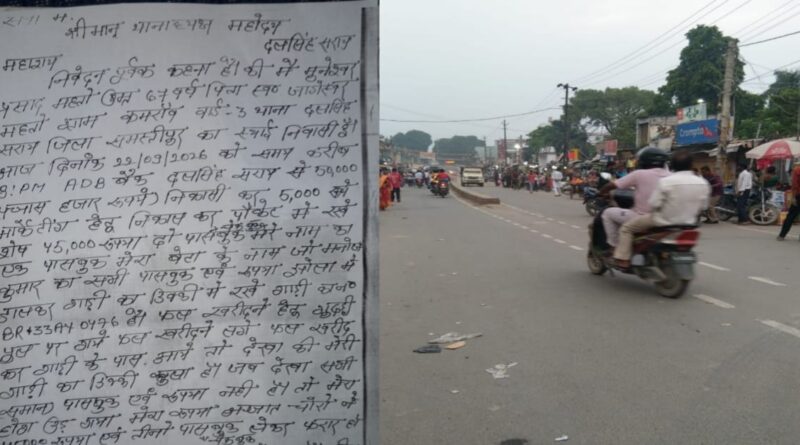 सेवा में
श्रीमान् थानाध्यक्ष महोदय
दलसिंह सराय
महाशय
निवेदन पूर्वक कहना है। की मैं मुनेश्वर
प्रसाद महतो उम्र 67 वर्ष पिता स्व० जागेश्वर
महतो ग्राम कमरांव वार्ड-3 थाना दलसिंह
सराय जिला समस्तीपुर का स्थाई निवासी हूँ।
आज दिनांक 22/03/2026 को समय करीब
PM ADB बैंक दलसिंह सराय से 50,000
पच्चास हजार रूपये) निकासी कर 5,000 रूपये
मार्केटिंग हेतु निकाल कर पॉकेट में रखे
शेष 45,000 रूपया दो पासबुक मेरे नाम का
एक पासबुक मेरा बेटा के नाम जो मनोज
कुमार का सभी पासबुक एवं रूपया झोला में
डालकर गाड़ी का डिक्की में रखे गाड़ी का न०
BR 33A 0476 है। फल खरीदने हेतु गुदरी
पुल पर आये फल खरीदने लगे फल खरीद
कर गाड़ी के पास आये तो देखा की मेरी
गाड़ी का डिक्की खुला है। जब देखा सभी
समान पासबुक एवं रूपया नहीं है। तो मेरा
होश उड़ गया मेरा रूपया अज्ञात चोरों ने
रूपया एवं तीनों पासबुक लेकर फरार हो
Crompton